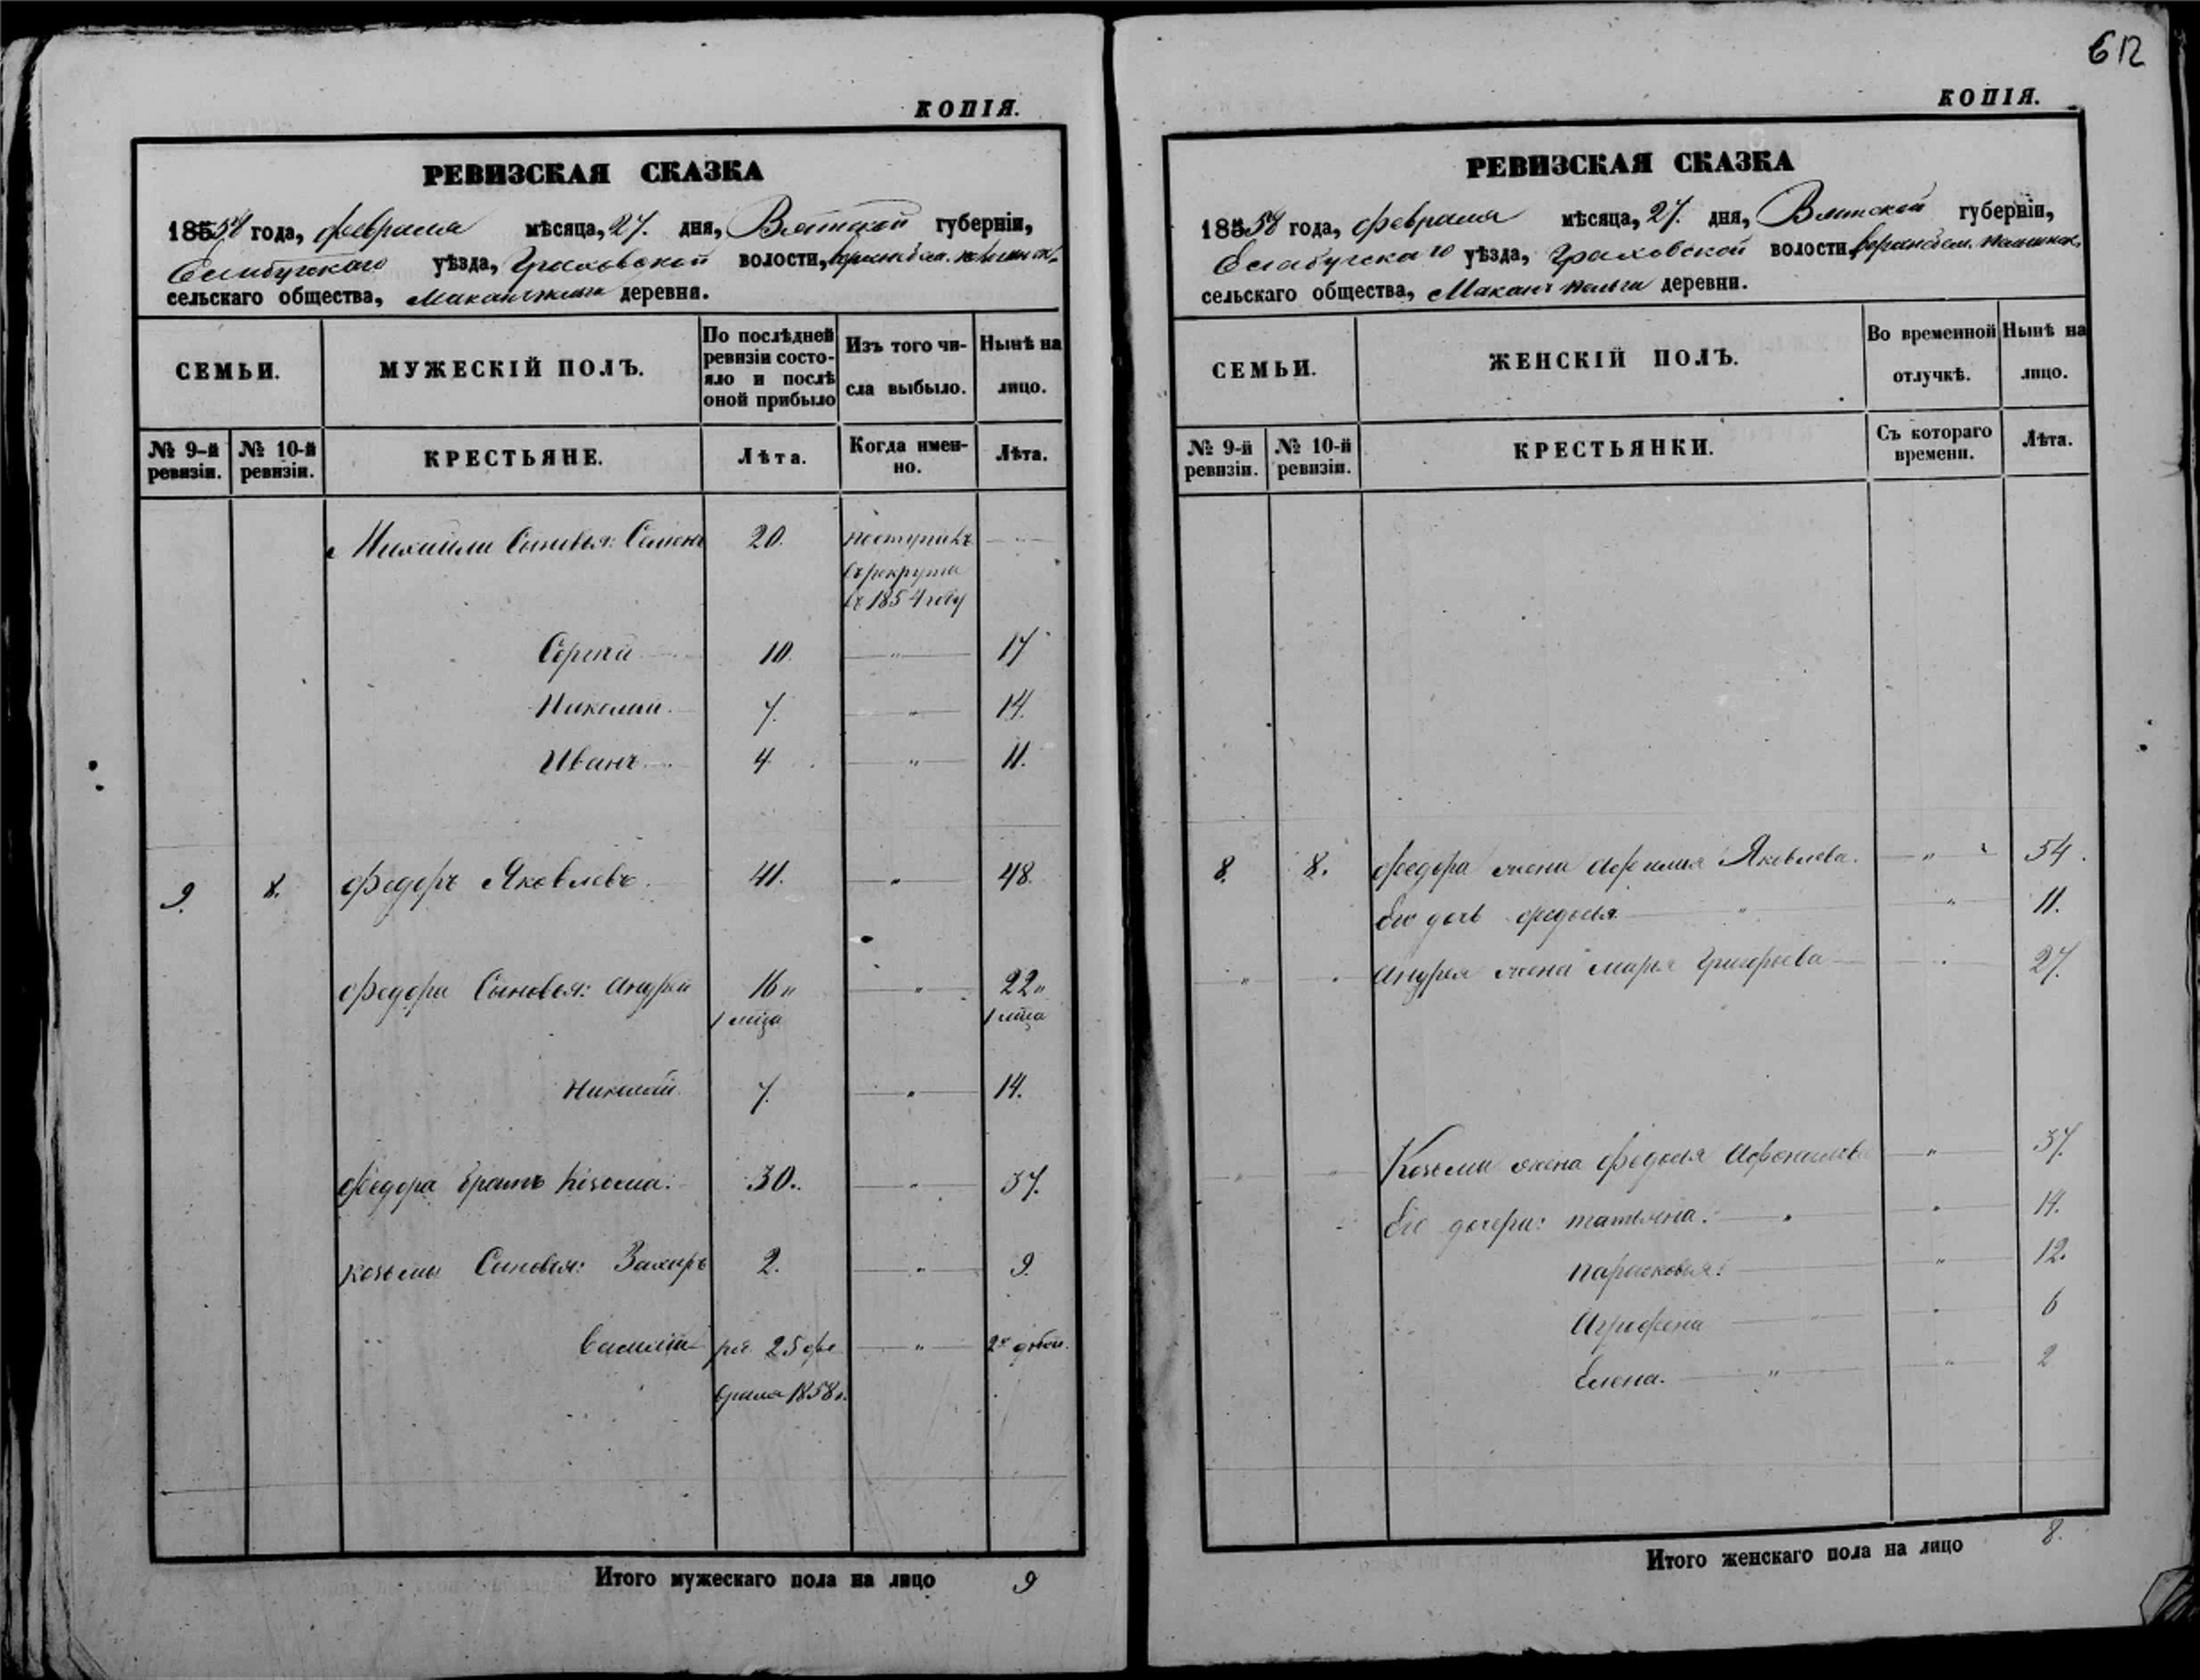 612
КОПІЯ.
РЕВИЗСКАЯ СКАЗКА
18558 года, февраля мѣсяца, 27. дня, Вятской губерніи,
Елабугскаго уѣзда, Граховской волости,
сельскаго общества, деревня.
СЕМЬИ.
МУЖЕСКІЙ ПОЛЪ.
По послѣдней ревизіи состояло и послѣ оной прибыло
Изъ того числа выбыло.
Нынѣ на лицо.
№ 9-й ревизіи.
№ 10-й ревизіи.
КРЕСТЬЯНЕ.
Лѣта.
Когда именно.
Лѣта.
Михаила Сыновья: Семенъ 20. поступилъ
въ рекруты
въ 1854 году
Сергей 10. " 17
Николай. 7. " 14.
Иванъ 4 " 11.
9. 8. Федоръ Яковлевъ. 41. " 48.
Федора Сыновья: Андрей 16 " " 22 "
1 мца 1 мца
Николай 7. " 14.
Федора братъ Козьма: 30. " 37.
Козьмы Сыновья: Захаръ 2. " 9.
Василій ро. 25 фе " 2х дней.
враля 1858 г.
Итого мужескаго пола на лицо 9
КОПІЯ.
РЕВИЗСКАЯ СКАЗКА
18558 года, февраля мѣсяца, 27. дня, Вятской губерніи,
Елабугскаго уѣзда, Граховской волости,
сельскаго общества, деревни.
СЕМЬИ.
ЖЕНСКІЙ ПОЛЪ.
Во временной отлучкѣ.
Нынѣ на лицо.
№ 9-й ревизіи.
№ 10-й ревизіи.
КРЕСТЬЯНКИ.
Съ котораго времени.
Лѣта.
8. 8. Федора жена Яковлева. " 54.
Его дочь Федосья " " 11.
" " Андрея жена Марья Григорьева " 27.
Козьмы жена Федосья " 37.
Его дочери: Татьяна. " " 14.
Парасковья: " 12.
Агрофена " " 6
Елена. " " 2
Итого женскаго пола на лицо 8.